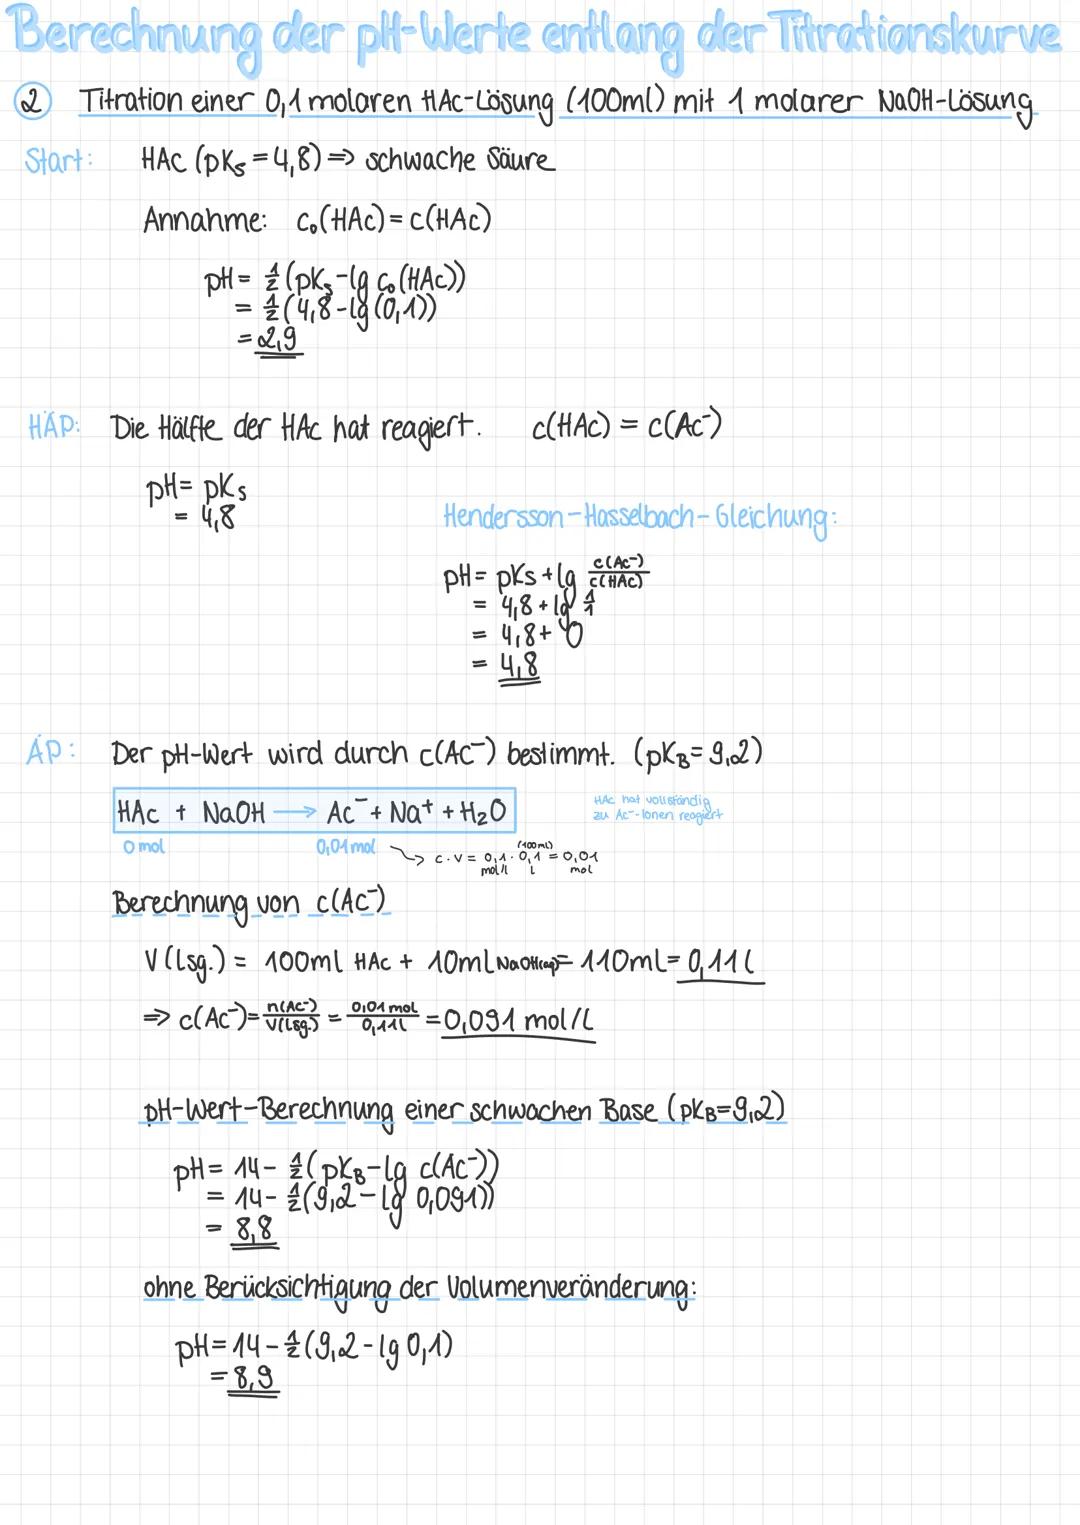 Berechnung der pH-Werte entlang der Titrationskurve
② Titration einer 0,1 molaren HAc-Lösung (100ml) mit 1 molarer NaOH-Lösung
Start: HAc (pKs = 4,8) ⇒ schwache Säure
Annahme: c₀(HAc) = c(HAc)
pH = ½ (pKs - lg c₀(HAc))
= ½ (4,8 - lg (0,1))
= 2,9
HÄP: Die Hälfte der HAc hat reagiert. c(HAc) = c(Ac⁻)
pH = pKs
= 4,8
Hendersson-Hasselbach-Gleichung:
pH = pKs + lg c(Ac⁻)/c(HAc)
= 4,8 + lg 1/1
= 4,8 + 0
= 4,8
ÄP: Der pH-Wert wird durch c(Ac⁻) bestimmt. (pKB = 9,2)
HAc + NaOH → Ac⁻ + Na⁺ + H₂O
HAc hat vollständig
zu Ac⁻-Ionen reagiert
0 mol 0,01 mol → c · V = 0,1 · 0,1 = 0,01
(100ml)
mol/l l mol
Berechnung von c(Ac⁻)
V (Lsg.) = 100ml HAc + 10ml NaOH(aq) = 110ml = 0,11 l
⇒ c(Ac⁻) = n(Ac⁻)/V(Lsg.) = 0,01 mol/0,11 l = 0,091 mol/L
pH-Wert-Berechnung einer schwachen Base (pKB = 9,2)
pH = 14 - ½ (pKB - lg c(Ac⁻))
= 14 - ½ (9,2 - lg 0,091))
= 8,8
ohne Berücksichtigung der Volumenveränderung:
pH = 14 - ½ (9,2 - lg 0,1)
= 8,9